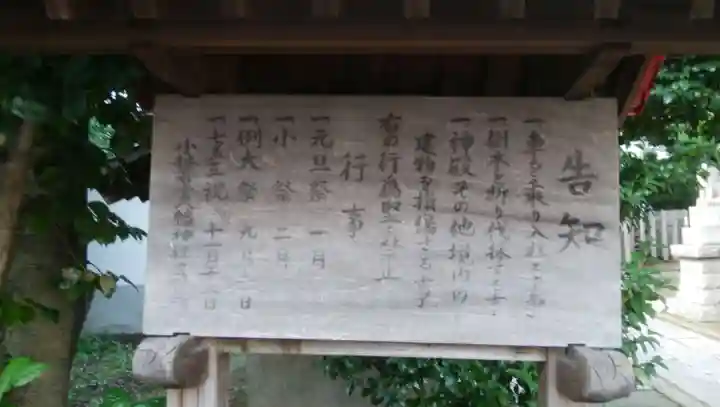 告知
一車を乗り入れること
一樹木を折り伐採すること
一神殿その他境内の
建物を損傷すること
右の行為堅く禁止
行事
一元旦祭 一月
一小祭 二年
一例大祭 九月 日
一七五三祝 十一月十五日
八幡神社